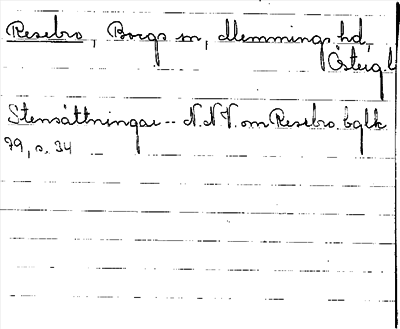 Resebro, Borgs sn, Memmings hd,
Östergl
Stensättningar -- N.N.V. om Resebro. bglk
79, s. 34